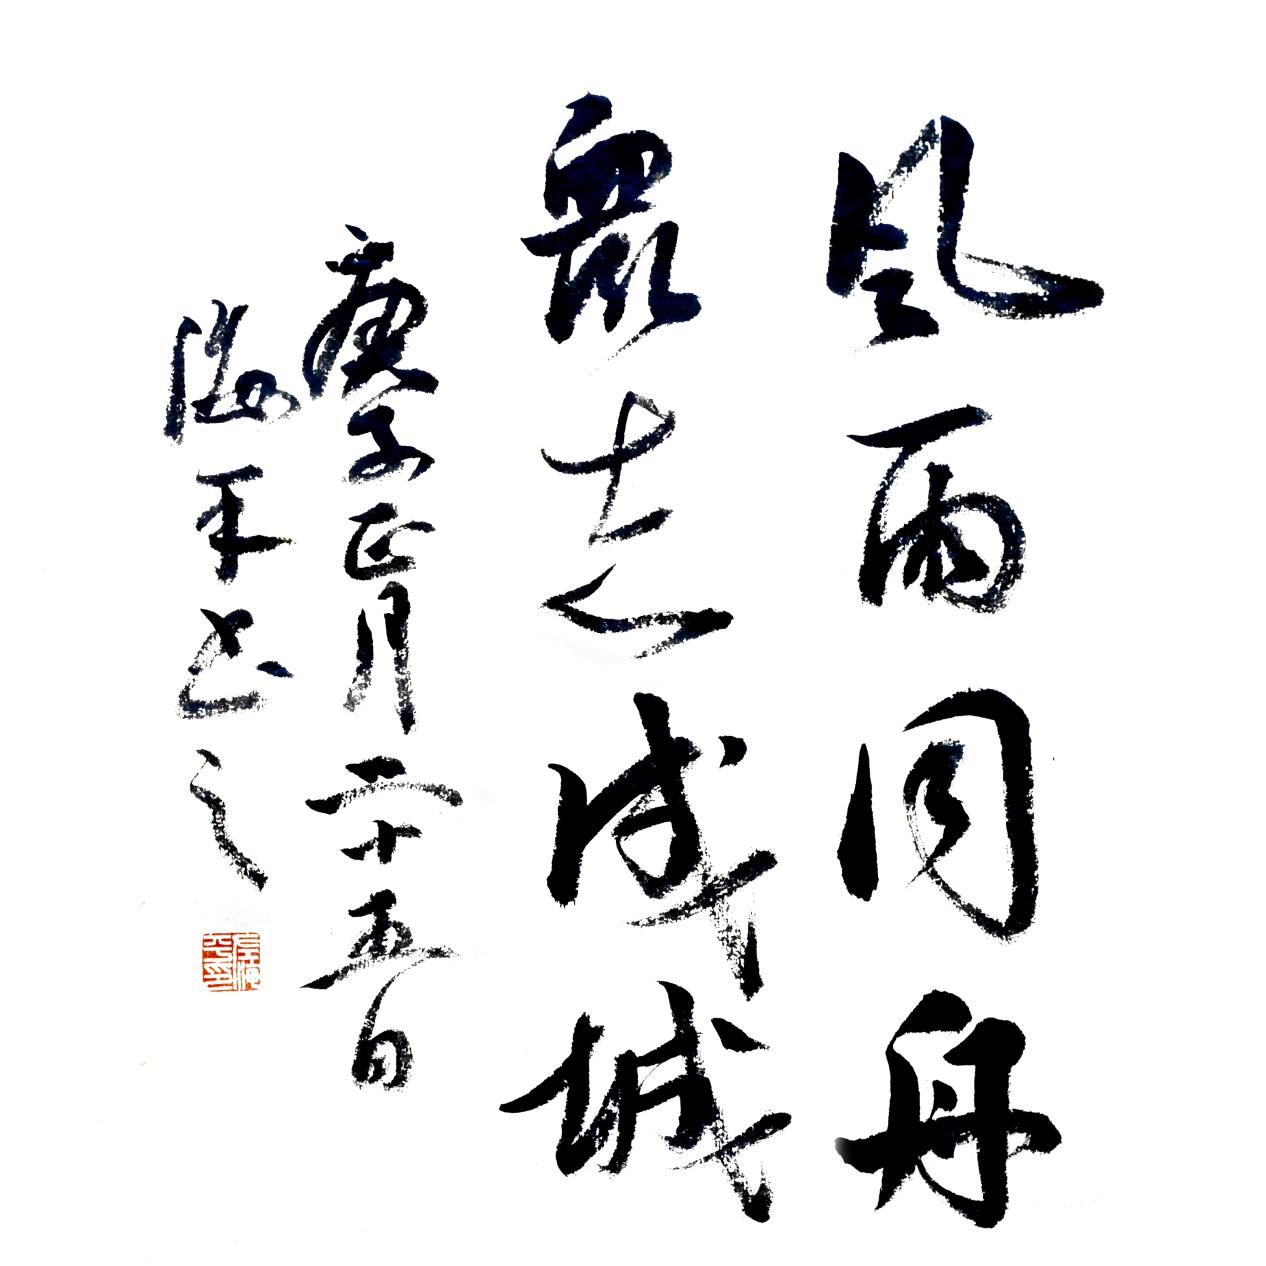 風雨同舟
眾志成城
庚子正月二十五日
海平书之